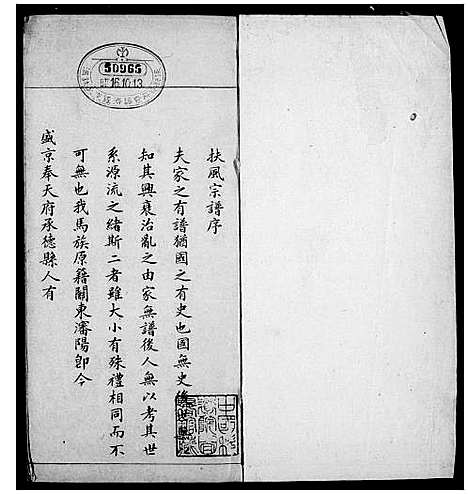 扶風宗譜序
夫家之有譜猶國之有史也國無史後
知其興衰治亂之由家無譜後人無以考其世
系源流之緒斯二者雖大小有殊禮相同而不
可無也我馬族原籍關東瀋陽即今
盛京奉天府承德縣人有
50965
16.10.13